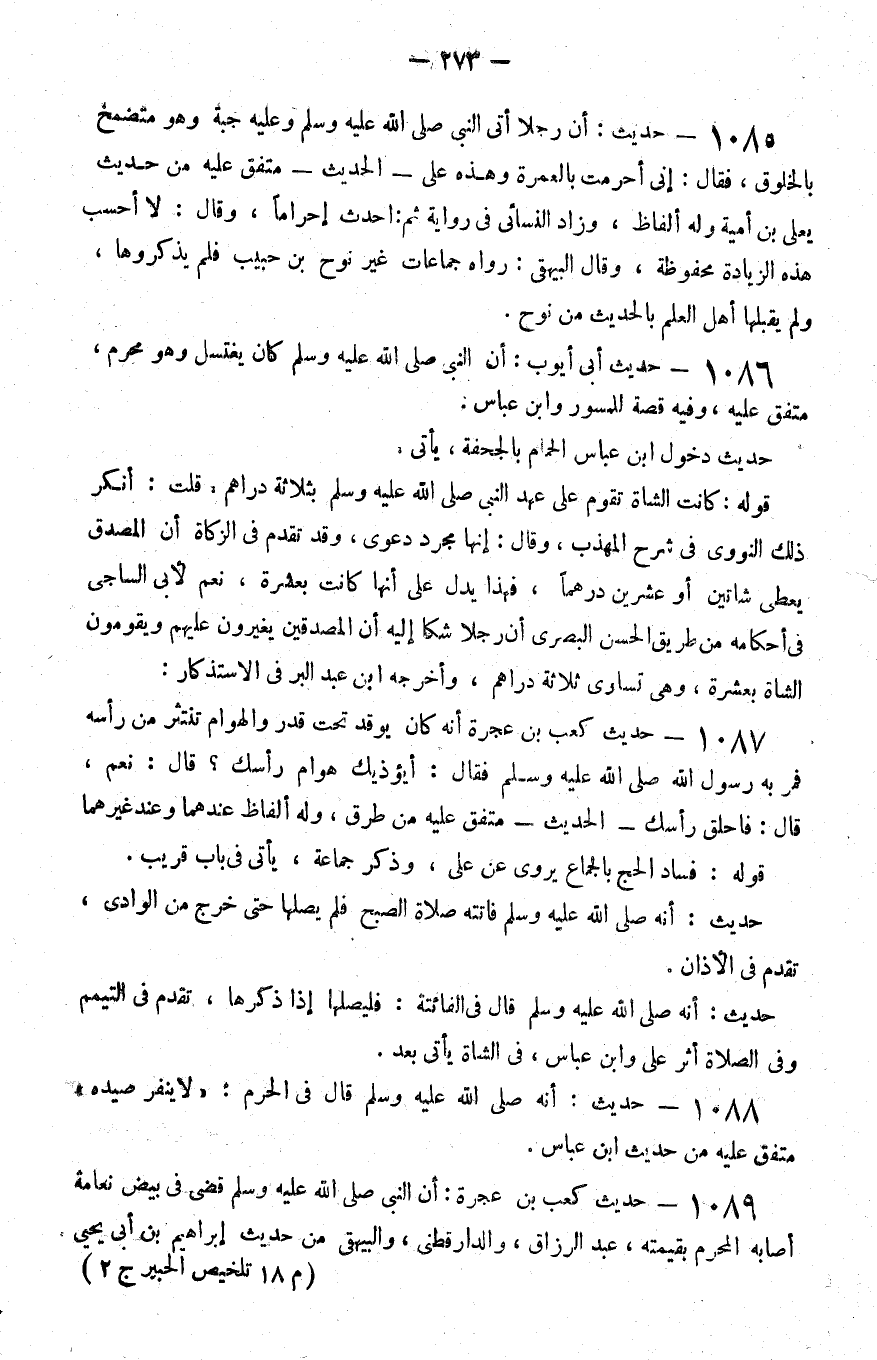 — ٢٧٣ —
١٠٨٥ — حديث : أن رجلا أتى النبي صلى الله عليه وسلم وعليه جبة وهو متضمخ
بالخلوق ، فقال : إنى أحرمت بالعمرة وهـذه على — الحديث — متفق عليه من حـديث
يعلى بن أمية وله ألفاظ ، وزاد النسائى فى رواية ثم : احدث إحراماً ، وقال : لا أحسب
هذه الزيادة محفوظة ، وقال البيهقى : رواه جماعات غير نوح بن حبيب فلم يذكروها ،
ولم يقبلها أهل العلم بالحديث من نوح .
١٠٨٦ — حديث أبى أيوب : أن النبى صلى الله عليه وسلم كان يغتسل وهو محرم ،
متفق عليه ، وفيه قصة للمسور وابن عباس .
حديث دخول ابن عباس الحمام بالجحفة ، يأتى .
قوله : كانت الشاة تقوم على عهد النبى صلى الله عليه وسلم بثلاثة دراهم . قلت : أنـكر
ذلك النووى فى شرح المهذب ، وقال : إنها مجرد دعوى ، وقد تقدم فى الزكاة أن المصدق
يعطى شاتين أو عشرين درهماً ، فهذا يدل على أنها كانت بعشرة ، نعم لأبى الساجى
فى أحكامه من طريق الحسن البصرى أن رجلا شكا إليه أن المصدقين يغيرون عليهم ويقومون
الشاة بعشرة ، وهى تساوى ثلاثة دراهم ، وأخرجه ابن عبد البر فى الاستذكار :
١٠٨٧ — حديث كعب بن عجرة أنه كان يوقد تحت قدر والهوام تنتثر من رأسه
فمر به رسول الله صلى الله عليه وسـلم فقال : أيؤذيك هوام رأسك ؟ قال : نعم ،
قال : فاحلق رأسك — الحديث — متفق عليه من طرق ، وله ألفاظ عندهما وعند غيرهما
قوله : فساد الحج بالجماع يروى عن على ، وذكر جماعة ، يأتى فى باب قريب .
حديث : أنه صلى الله عليه وسلم فاتته صلاة الصبح فلم يصلها حتى خرج من الوادى ،
تقدم فى الأذان .
حديث : أنه صلى الله عليه وسلم قال فى الفائتة : فليصلها إذا ذكرها ، تقدم فى التيمم
وفى الصلاة أثر على وابن عباس ، فى الشاة يأتى بعد .
١٠٨٨ — حديث : أنه صلى الله عليه وسلم قال فى الحرم : « لا ينفر صيده »
متفق عليه من حديث ابن عباس .
١٠٨٩ — حديث كعب بن عجرة : أن النبى صلى الله عليه وسلم قضى فى بيض نعامة
أصابه المحرم بقيمته ، عبد الرزاق ، والدارقطنى ، والبيهقى من حديث إبراهيم بن أبى يحيى
( م ١٨ تلخيص الحبير ج ٢ )